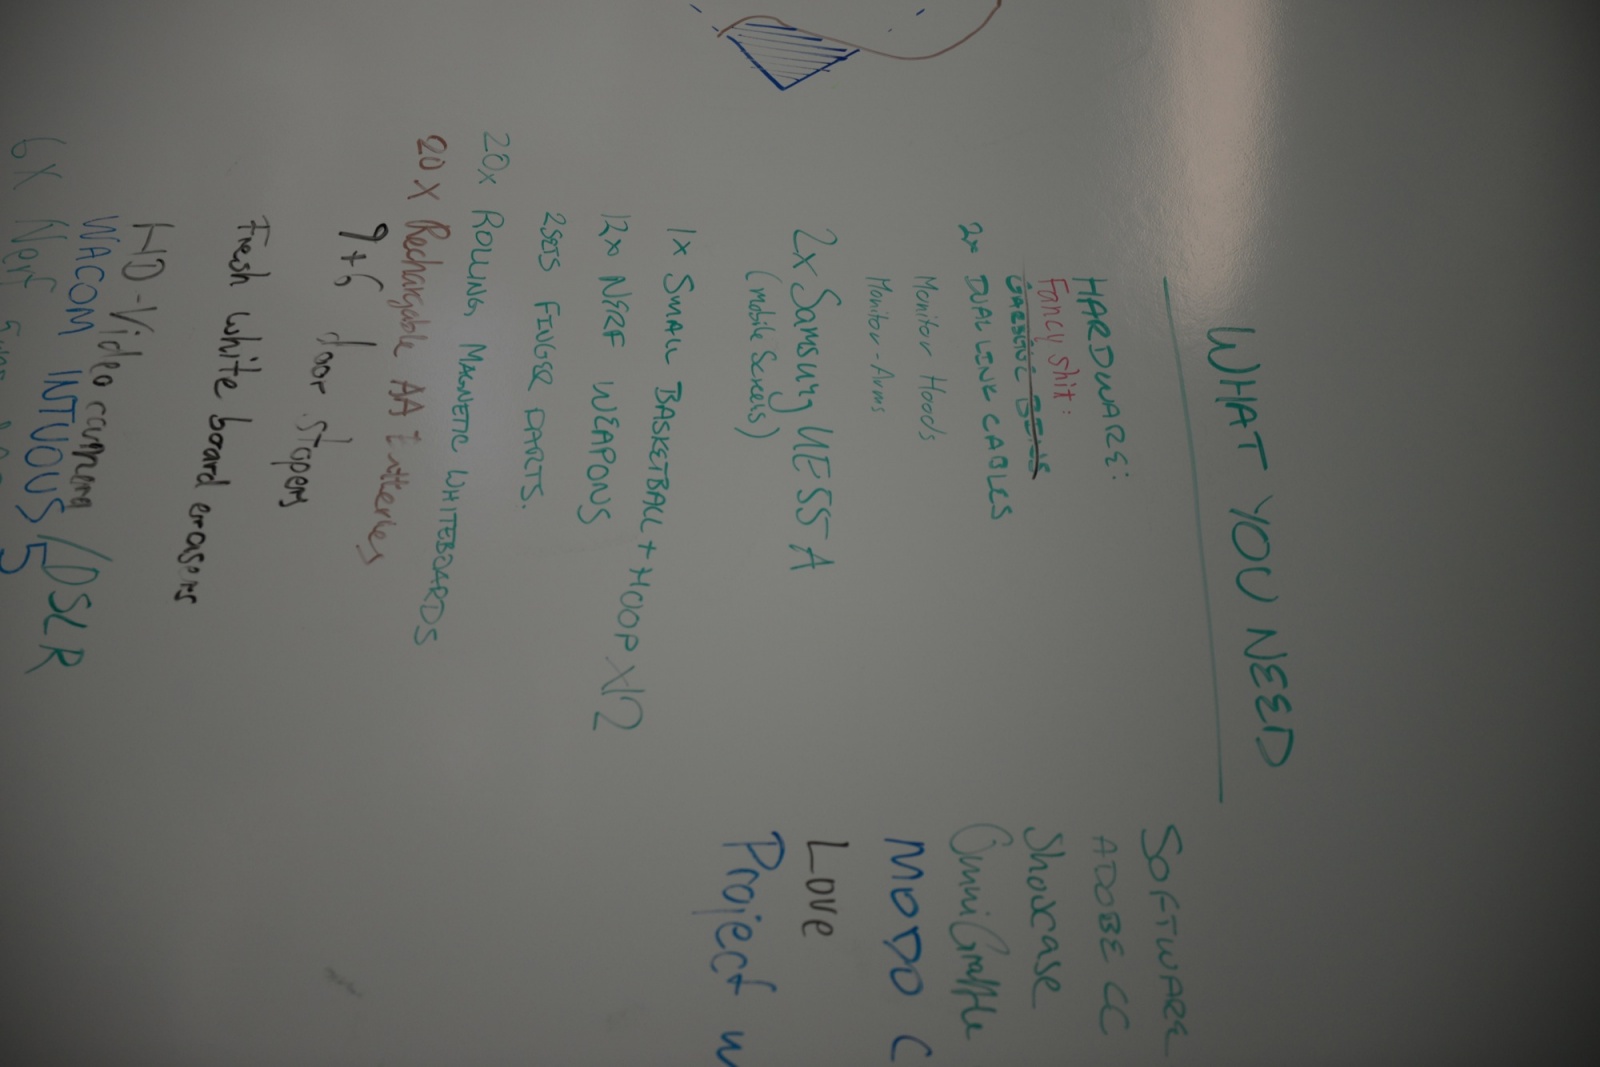 WHAT YOU NEED
HARDWARE:
Fancy shit:
2x DUAL LINK CABLES
Monitor Hoods
Monitor-Arms
2x Samsung UE55A
(mobile screens)
1x SMALL BASKETBALL + HOOP X12
12x NERF WEAPONS
2SETS FINGER DARTS.
20x ROLLING MAGNETIC WHITEBOARDS
20 X Rechargable AA Batteries
9+6 door stopers
Fresh white board erasers
HD-Video camera /DSLR
WACOM INTUOUS 5
6X Nerf
SOFTWARE
ADOBE CC
Showcase
OmniGraffle
MODO
LOVE
Project